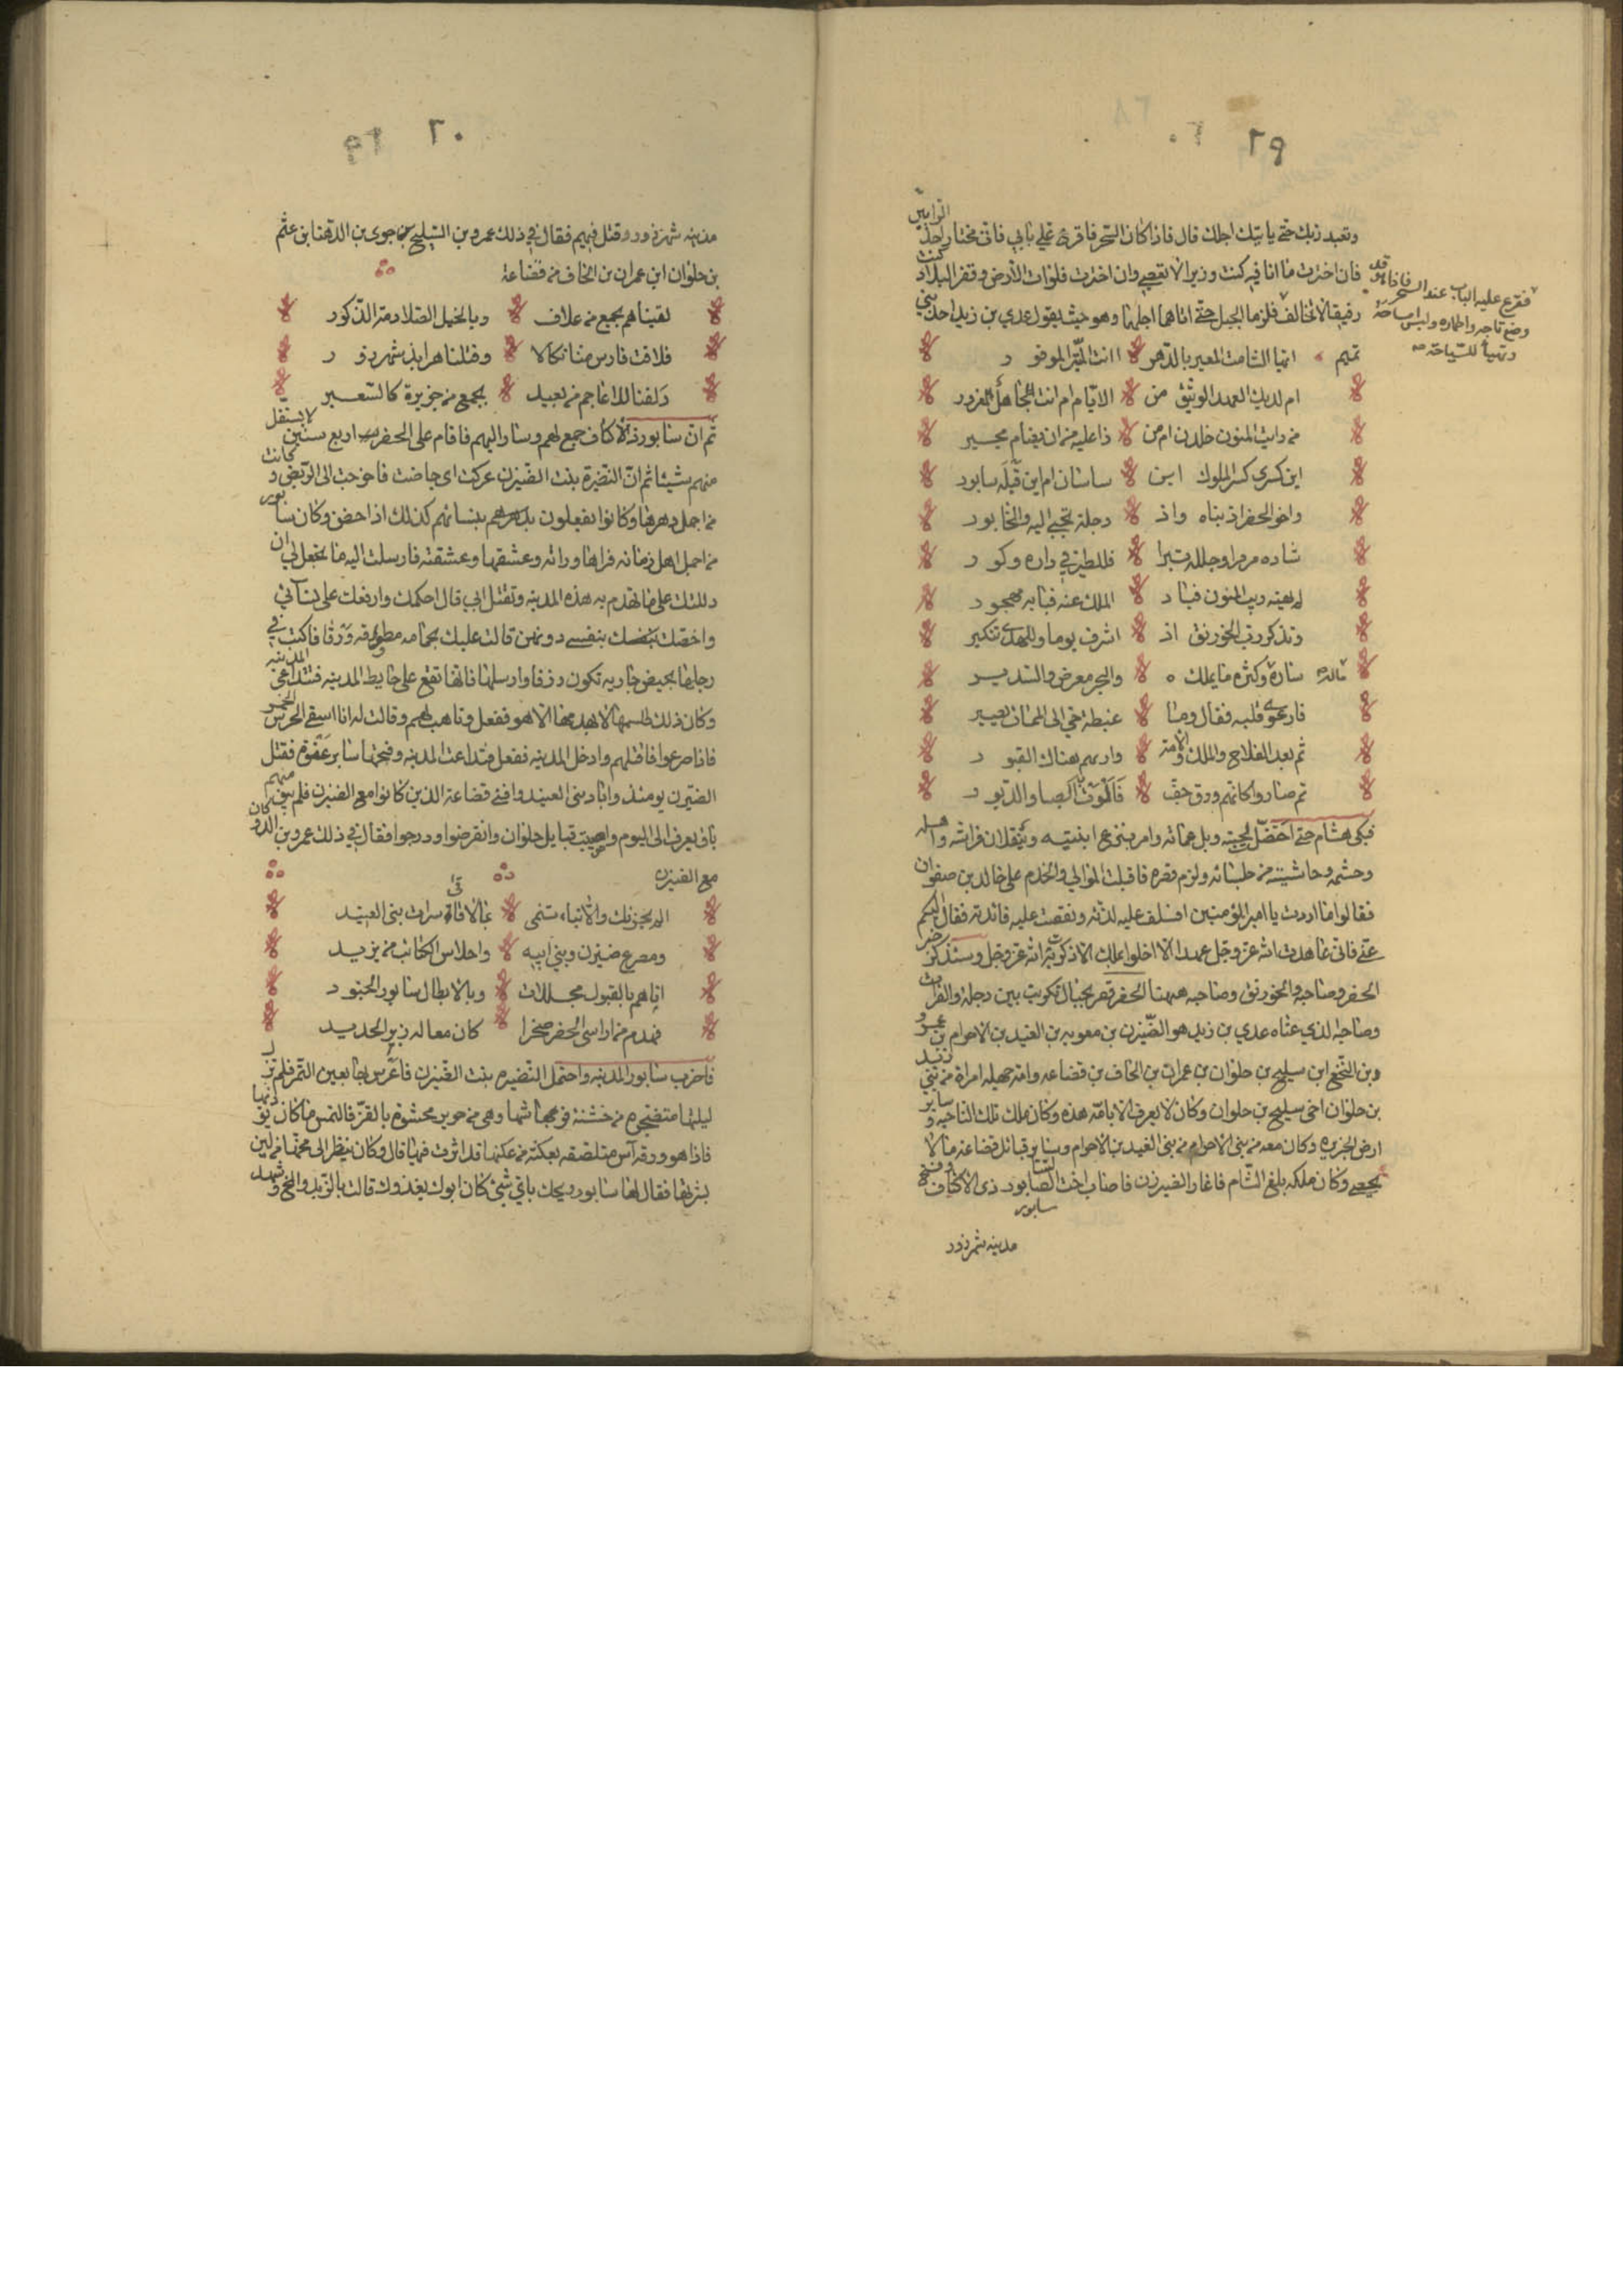 ٢٩
وتعبد ربك حتى ياتيك اجلك قال فاذا كان السحر فاقرع علي بابي فاني مختار احد الرايين
فان اخترت ما انا فيه كنت وزيرا لا تعصى وان اخترت فلوات الارض وقفر البلاد كنت
رفيقا لا تخالف فلزما الجبل حتى اتاهما اجلهما وهو حيث يقول عدي بن زيد احد بني
فقرع عليه الباب عند السحر فاذا هو قد
وضع تاجه واطماره ولبس امساحه
وتهيأ للسياحة صح
تميم ايها الشامت المعير بالدهر اانت المبرّا الموفور
ام لديك العهد الوثيق من الايام ام انت الجاهل المغرور
من رايت المنون خلدن ام من ذا عليه من ان يضام مجير
اين كسرى كسر الملوك ابن ساسان ام اين قبله سابور
واخو الحضر اذ بناه واذ دجلة تجبى اليه والخابور
شاده مرمرا وجلله تبرا فللطير في داره وكور
لم يهبه ريب المنون فباد الملك عنه فبابه مهجور
وتذكر رب الخورنق اذ اشرف يوما وللهدى تفكير
ساره وكثرة ما يملك والبحر معرض والسدير
فارعوى قلبه فقال وما غبطة حي الى الممات يصير
ثم بعد الفلاح والملك والامة وارتهم هناك القبور
ثم صاروا كانهم ورق جف فالوت به الصبا والدبور
فبكى هشام حتى اخضل لحيته وبل عمامته وامر بنزع ابنيته وبنقلان فراشه واهله
وحشمه وحاشيته من جلسائه ولزم قصره فاقبلت الموالي والخدم على خالد بن صفوان
فقالوا ما اردت يا امير المؤمنين افسدت عليه لذته ونغصت عليه مائدته فقال اليكم
عني فاني عاهدت الله عز وجل عهدا الا اخلو بملك الا ذكرته الله عز وجل وسنذكر خبر
الحضر وصاحبه والخورنق وصاحبه ههنا الحضر قصر بجبال تكريت بين دجلة والفرات
وصاحبه الذي عناه عدي بن زيد هو الضيزن بن معويه بن العبيد بن الاحرام بن عمرو
وبن النخع ابن سليح بن حلوان بن عمران بن الحاف بن قضاعه وامه جهيله امراة من بني زيد
بن حلوان اخي سليح بن حلوان وكان لا يعرف الا بامه هذه وكان ملك تلك الناحية وساير
ارض الجزيره وكان معه من بني الاحرام من بني العبيد بن الاحرام وساير قبائل قضاعه ما لا
يحصى وكان ملكه بلغ الشام فاغار الضيزن فاصاب اختا لسابور ذي الاكتاف وفتح
سابور
مدينه شهرزور
٢٠
مدينه شهرزور وقتل فيهم فقال في ذلك عمرو بن السليح بن جوى بن الدهنا بن عثم
بن حلوان ابن عمران بن الحاف من قضاعة
لقيناهم بجمع من علاف وبالخيل الصلادمة الذكور
فلاقت فارس منا نكالا وقتلنا هرابذ شهرزور
دلفنا للاعاجم من بعيد بجمع من جزيرة كالسعير
ثم ان سابور ذا الاكتاف جمع لهم وسار اليهم فاقام على الحضر اربع سنين لا يستقل
منهم شيئا ثم ان النضيرة بنت الضيزن عركت اى حاضت فاخرجت الى الربض وكانت
من اجمل دهرها وكانوا يفعلون بنسائهم كذلك اذا حضن وكان سابور
من اجمل اهل زمانه فراها وراته وعشقها وعشقته فارسلت اليه ما تجعل لي ان
دللتك على ما تهدم به هذه المدينه وتقتل ابي قال احكمك وارفعك على نسائي
واخصك بنفسي دونهن قالت عليك بحمامه مطوقه ورقا فاكتب في
رجلها بحيض جاريه تكون زرقا وارسلها فانها تقع على حايط المدينه فتتداعى المدينه
وكان ذلك طلسمها لا يهدمها الا هو ففعل وتاهب لهم وقالت له انا اسقي الحرس الخمر
فاذا صرعوا فاقتلهم وادخل المدينه ففعل فتداعت المدينه وفتحها سابر عنوة فقتل
الضيزن يومئذ واباد بني العبيد وافنى قضاعة الذين كانوا مع الضيزن فلم يبق منهم
باق يعرف الى اليوم واصيبت قبايل حلوان وانقرضوا ودرجوا فقال في ذلك عمرو بن الدو كان
مع الضيزن
الم يحزنك والانباء تنمى بما لاقت سراة بني العبيد
ومصرع ضيزن وبني ابيه واحلاس الكتائب من يزيد
اتاهم بالفيول مجللات وبالابطال سابور الجنود
فهدم من اواسي الحضر صخرا كان معاله زبر الحديد
فاخرب سابور المدينه واحتمل النضيره بنت الضيزن فاعرس بها بعين التمر فلم تزل
ليلتها متضجره من خشنة فرشها وهي من حرير محشوة بالقز فالتمس ما كان يؤذيها
فاذا هو ورقه آس ملتصقه بعكنه من عكنها قد اثرت فيها قال وكان ينظر الى مخها من لين
بشرتها فقال لها سابور ويحك باي شئ كان ابوك يغذوك قالت بالزبد والمخ وشهد